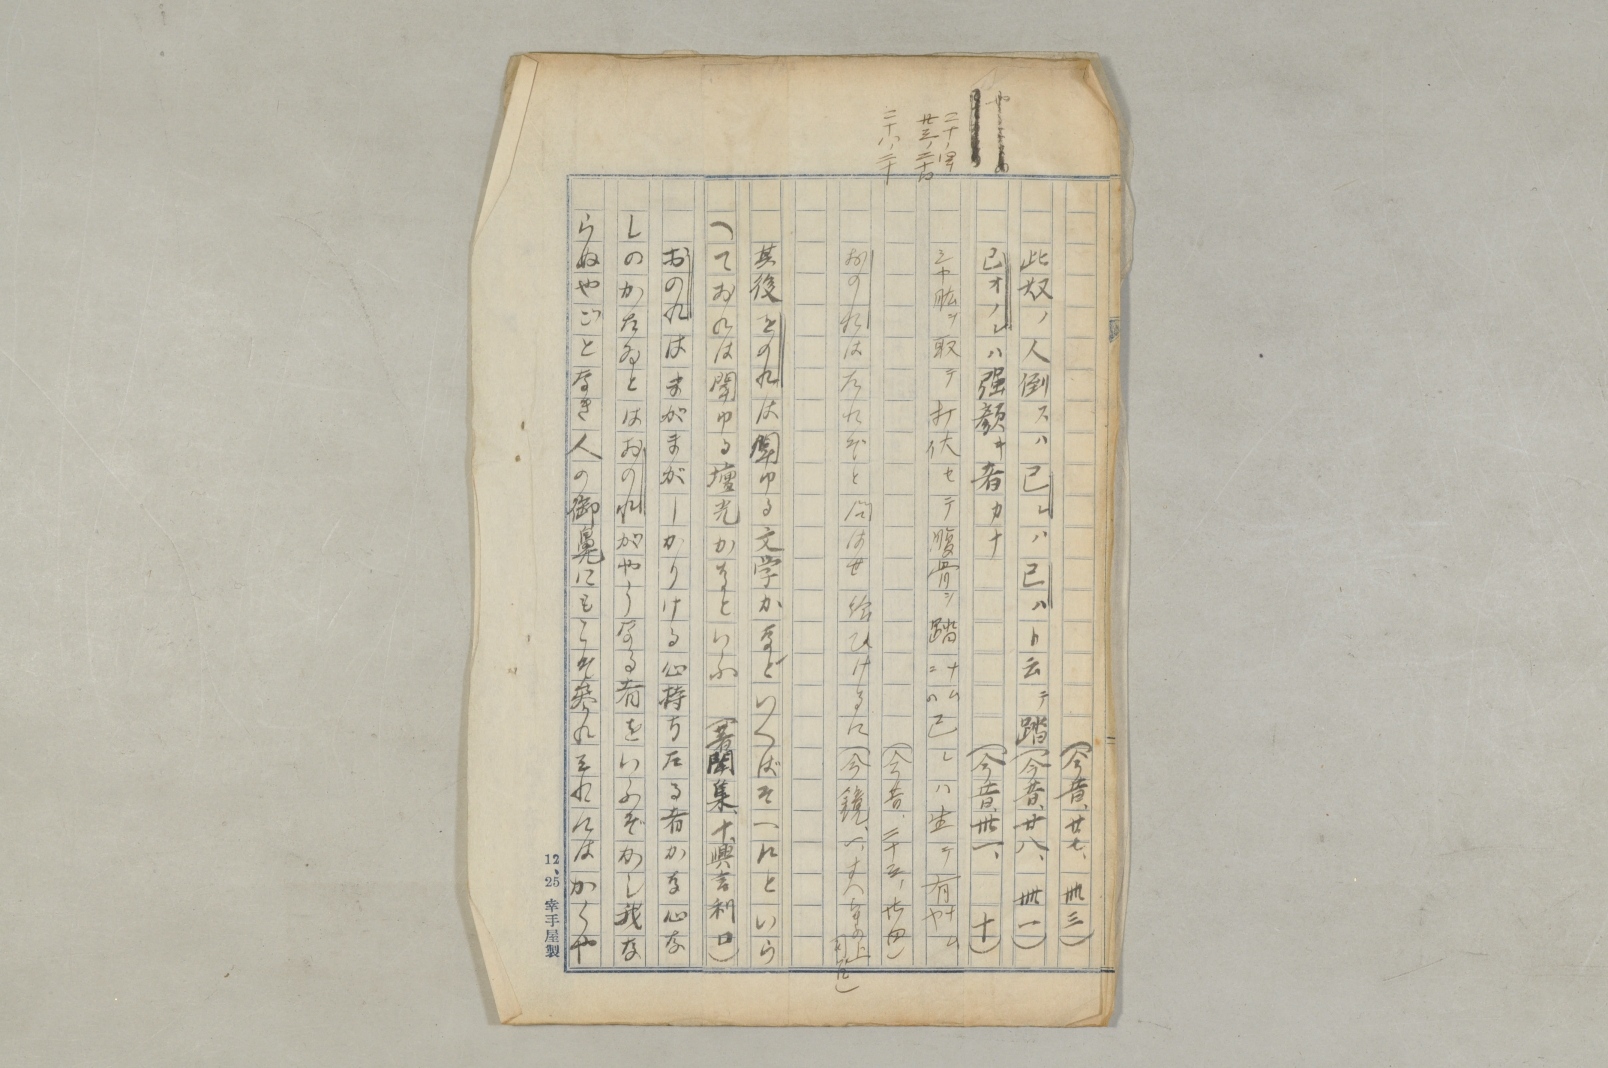 二十、四
廿三、二十四
二十八、二十
（今昔、廿七、卅三）
此奴ノ人倒スハ己レハ己ハト云テ踏（今昔、廿八、卅一）
己オノレハ强顔キ者カナ（今昔、卅一、十）
シヤ肱ヲ取テ打伏セテ腹骨ヲ踏ニナムニハ己レハ生テ有ナムヤ
（今昔、二十五、廿四）
おのれはたれぞと問はせ給ひけるに（今鏡、一、すべらぎの上
其後をのれは聞ゆる文学かなどいへばそへにといら
へておれは聞ゆる壇光かなといふ（著聞集、十、興言利口）
おのれはまがまがしかりける心持ちたる者かな心な
しのかたゐとはおのれがやうなる者をいふぞかし我な
らぬやごとなき人の御鼻にもこそ参れそれにはかくや
12、25 幸手屋製